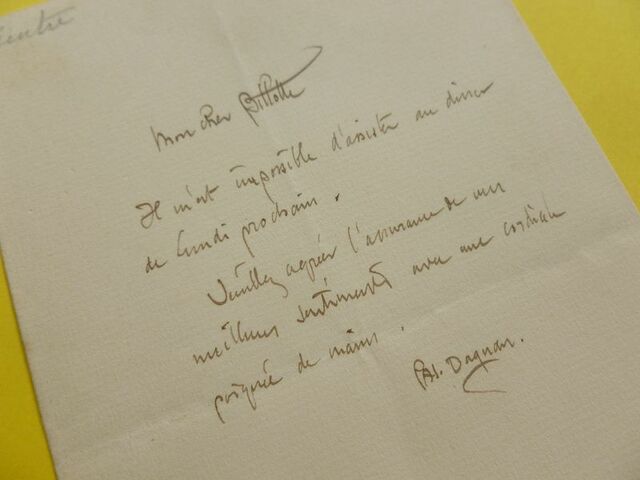 Mon cher Billotte
Il m'est impossible d'assister au diner
de Lundi prochain.
Veuillez agréer l'assurance de mes
meilleurs sentiments avec une cordiale
poignée de mains.
PAJ. Dagnan.